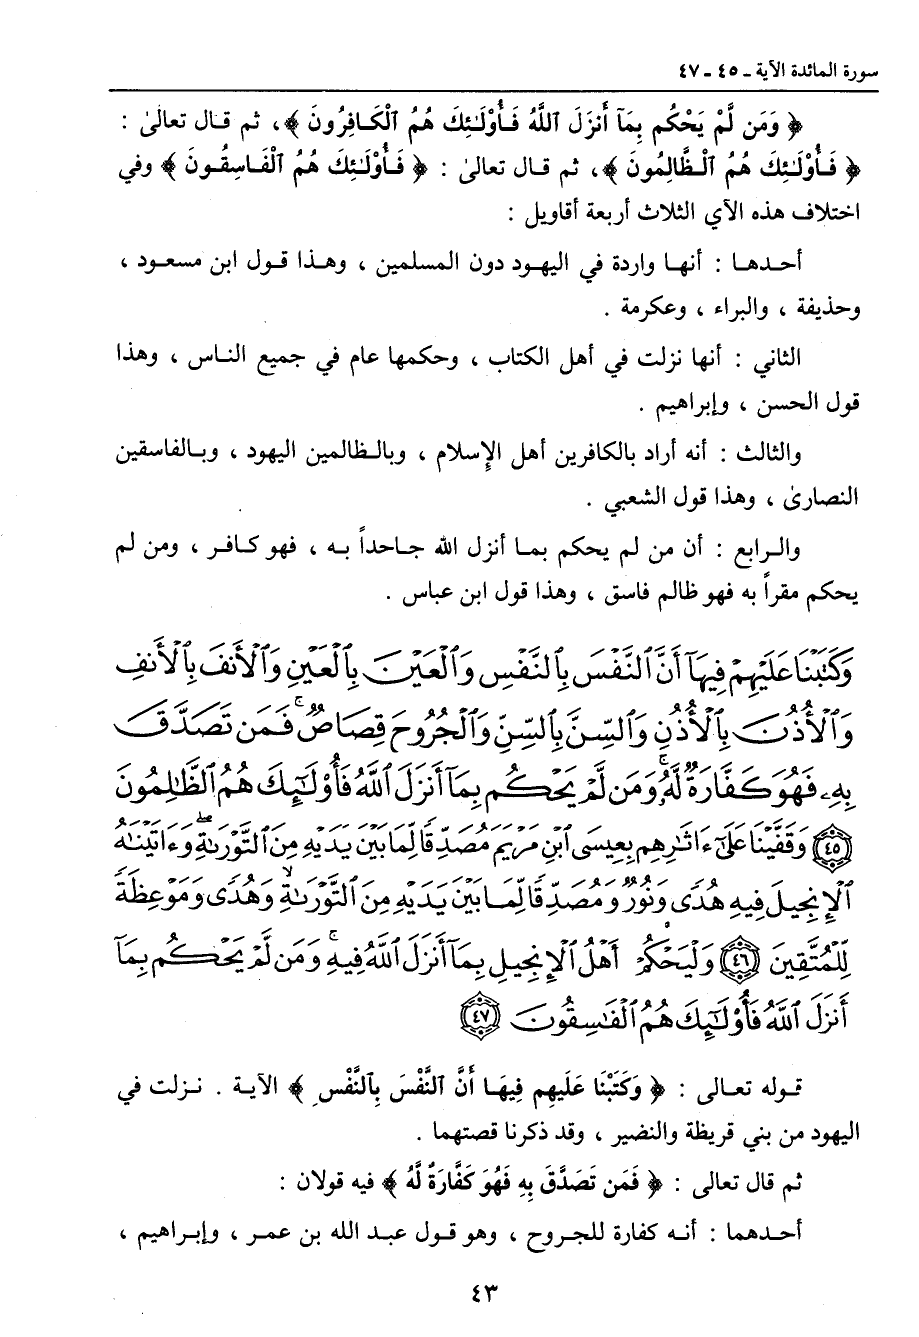 سورة المائدة الآية ـ ٤٥ ـ ٤٧
﴿ وَمَن لَّمْ يَحْكُم بِمَآ أَنزَلَ اللَّهُ فَأُوْلَـٰئِكَ هُمُ ٱلْكَـافِرُونَ ﴾، ثم قـال تعالىٰ :
﴿ فَـأُوْلَـٰئِكَ هُمُ ٱلْـظَّالِمُونَ ﴾، ثم قـال تعالىٰ : ﴿ فَـأُوْلَـٰئِكَ هُمُ ٱلْفَـاسِقُـونَ ﴾ وفي
اختلاف هذه الآي الثلاث أربعة أقاويل :
أحـدهـا : أنهـا واردة في اليهـود دون المسلمين ، وهـذا قـول ابن مسعـود ،
وحذيفة ، والبراء ، وعكرمة .
الثاني : أنها نزلت في أهل الكتاب ، وحكمها عام في جميع النـاس ، وهذا
قول الحسن ، وإبراهيم .
والثالث : أنه أراد بالكافرين أهل الإسلام ، وبالـظالمين اليهود ، وبـالفاسقين
النصارىٰ ، وهذا قول الشعبي .
والـرابع : أن من لم يحكم بمـا أنزل الله جـاحداً بـه ، فهو كـافـر ، ومن لم
يحكم مقراً به فهو ظالم فاسق ، وهذا قول ابن عباس .
وَكَتَبْنَا عَلَيْهِمْ فِيهَآ أَنَّ ٱلنَّفْسَ بِٱلنَّفْسِ وَٱلْعَيْنَ بِٱلْعَيْنِ وَٱلْأَنفَ بِٱلْأَنفِ
وَٱلْأُذُنَ بِٱلْأُذُنِ وَٱلسِّنَّ بِٱلسِّنِّ وَٱلْجُرُوحَ قِصَاصٌ ۚ فَمَن تَصَدَّقَ
بِهِۦ فَهُوَ كَفَّارَةٌ لَّهُۥ ۚ وَمَن لَّمْ يَحْكُم بِمَآ أَنزَلَ ٱللَّهُ فَأُوْلَـٰٓئِكَ هُمُ ٱلظَّـٰلِمُونَ
٤٥ وَقَفَّيْنَا عَلَىٰٓ ءَاثَـٰرِهِم بِعِيسَى ٱبْنِ مَرْيَمَ مُصَدِّقًا لِّمَا بَيْنَ يَدَيْهِ مِنَ ٱلتَّوْرَىٰةِ ۖ وَءَاتَيْنَـٰهُ
ٱلْإِنجِيلَ فِيهِ هُدًى وَنُورٌ وَمُصَدِّقًا لِّمَا بَيْنَ يَدَيْهِ مِنَ ٱلتَّوْرَىٰةِ وَهُدًى وَمَوْعِظَةً
لِّلْمُتَّقِينَ ٤٦ وَلْيَحْكُمْ أَهْلُ ٱلْإِنجِيلِ بِمَآ أَنزَلَ ٱللَّهُ فِيهِ ۚ وَمَن لَّمْ يَحْكُم بِمَآ
أَنزَلَ ٱللَّهُ فَأُوْلَـٰٓئِكَ هُمُ ٱلْفَـٰسِقُونَ ٤٧
قـوله تعـالى : ﴿ وَكَتَبْنَا عَلَيهِم فِيهَـا أَنَّ ٱلنَّفْسَ بِٱلنَّفْسِ ﴾ الآيـة . نـزلت في
اليهود من بني قريظة والنضير ، وقد ذكرنا قصتهما .
ثم قال تعالى : ﴿ فَمَن تَصَدَّقَ بِهِ فَهُوَ كَفَّارَةٌ لَّهُ ﴾ فيه قولان :
أحـدهما : أنـه كفارة للجروح ، وهو قـول عبـد الله بن عمـر ، وإبـراهيم ،
٤٣